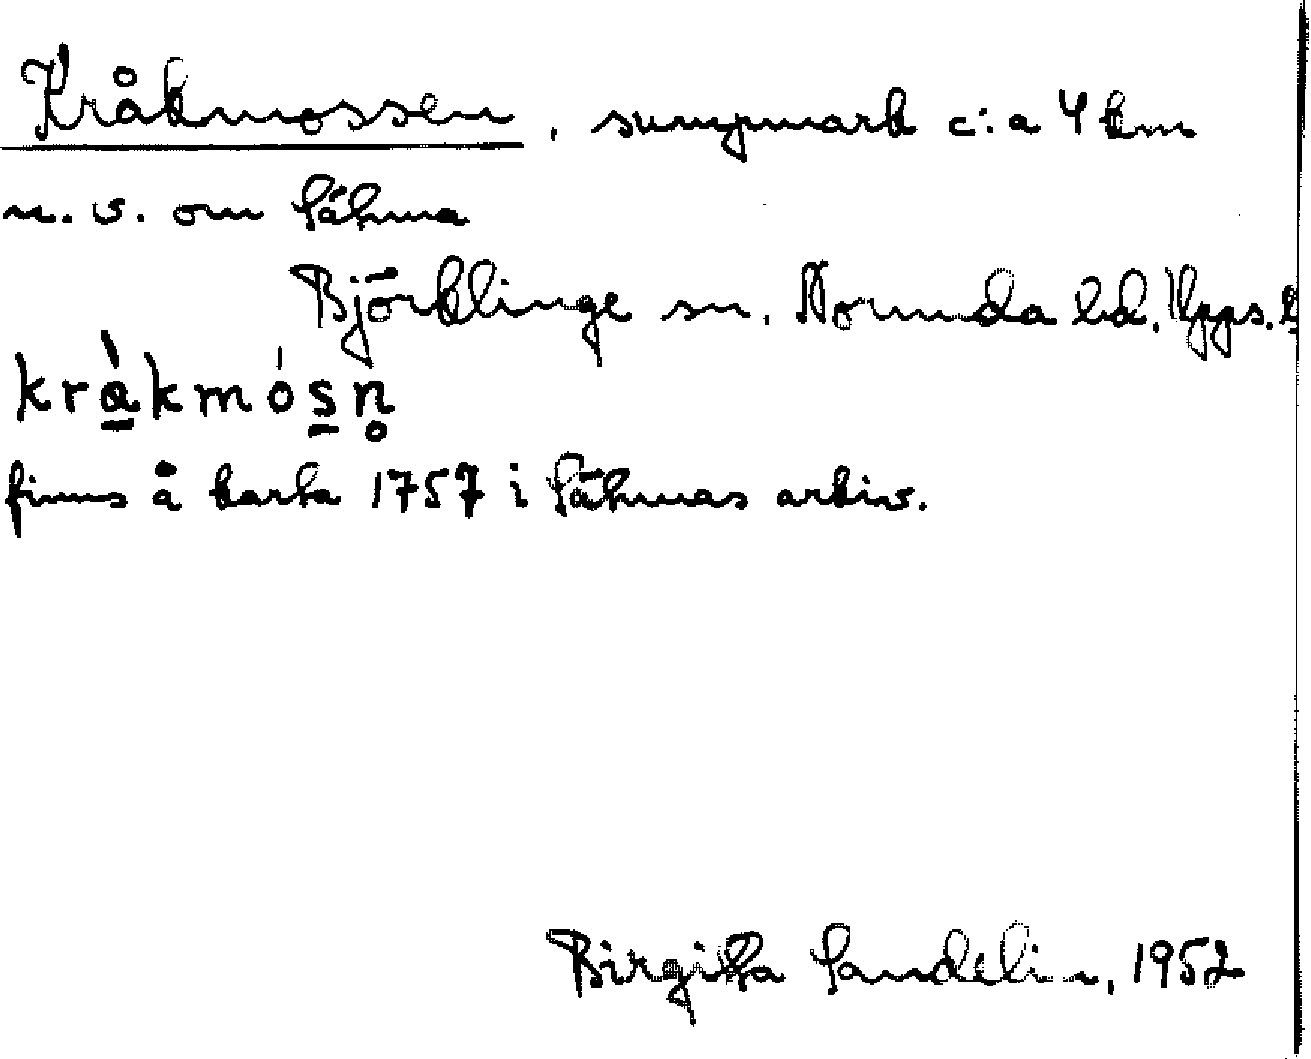 Kråkmossen, sumpmark c:a 4 km
n. v. om Sätuna
Björklinge sn. Norunda hd. Upps. l
krå̀kmósn̥
finns å karta 1757 i Sätunas arkiv.
Birgitta Sandelin, 1952